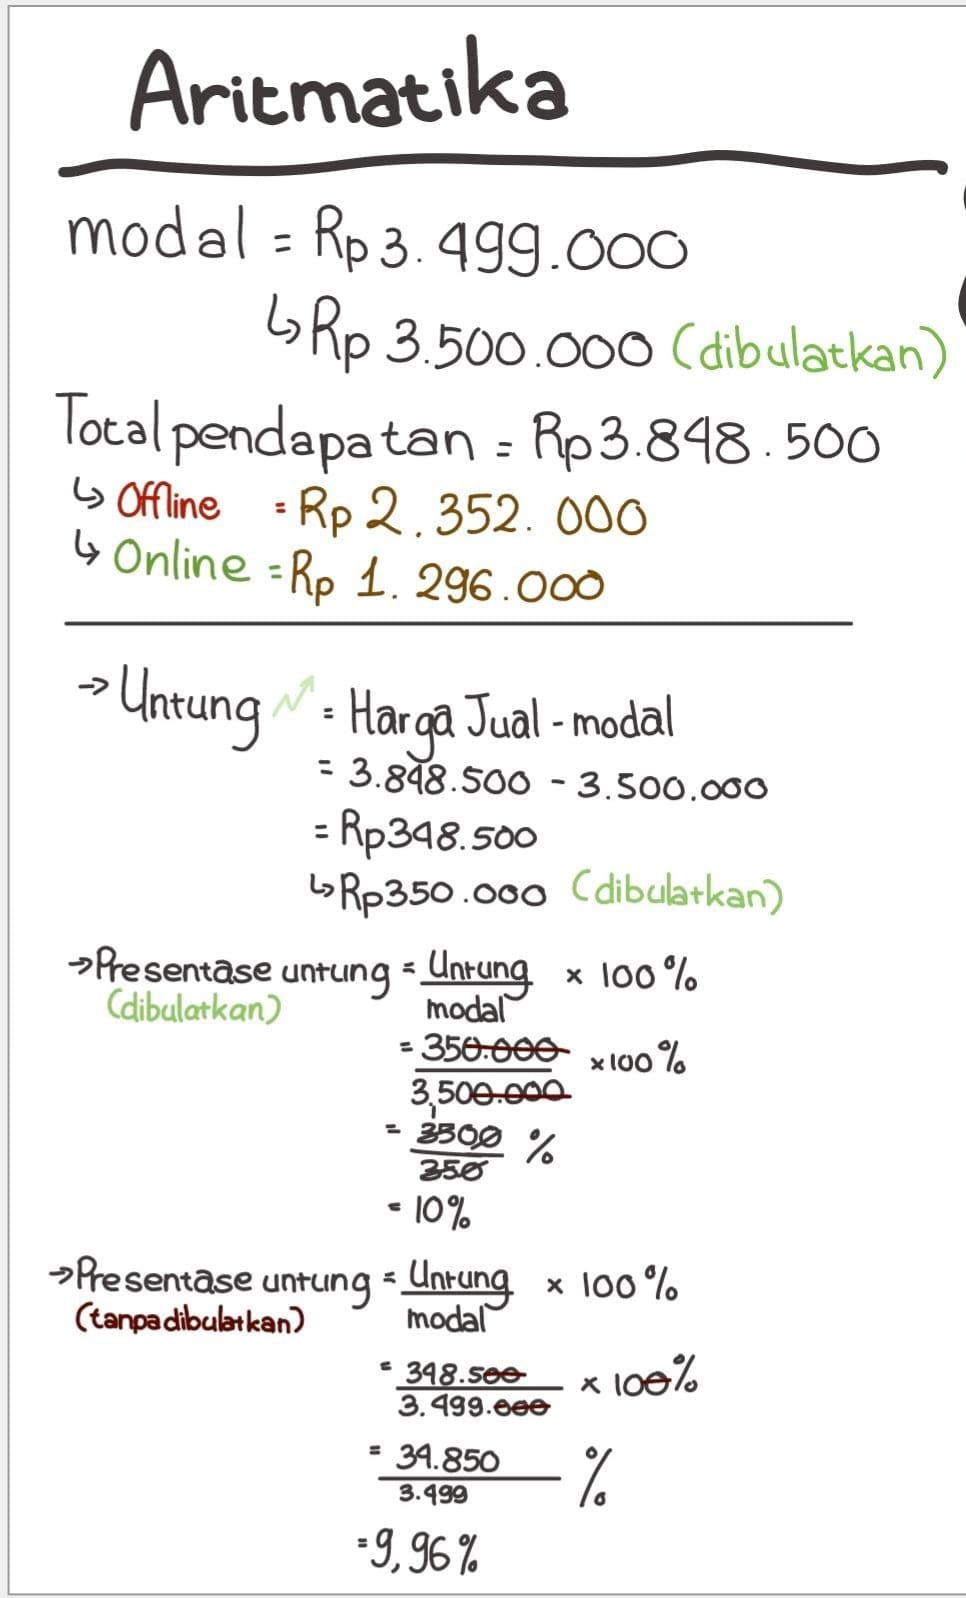 Aritmatika
modal = Rp 3.499.000
↳ Rp 3.500.000 (dibulatkan)
Total pendapatan = Rp3.848.500
↳ Offline = Rp 2.352.000
↳ Online = Rp 1.296.000
→ Untung = Harga Jual - modal
= 3.848.500 - 3.500.000
= Rp348.500
↳ Rp350.000 (dibulatkan)
→ Presentase untung = Untung × 100 %
(dibulatkan) modal
= 350.000 × 100 %
3.500.000
= 3500 %
350
= 10%
→ Presentase untung = Untung × 100 %
(tanpa dibulatkan) modal
= 348.500 × 100%
3.499.000
= 34.850 %
3.499
= 9,96 %